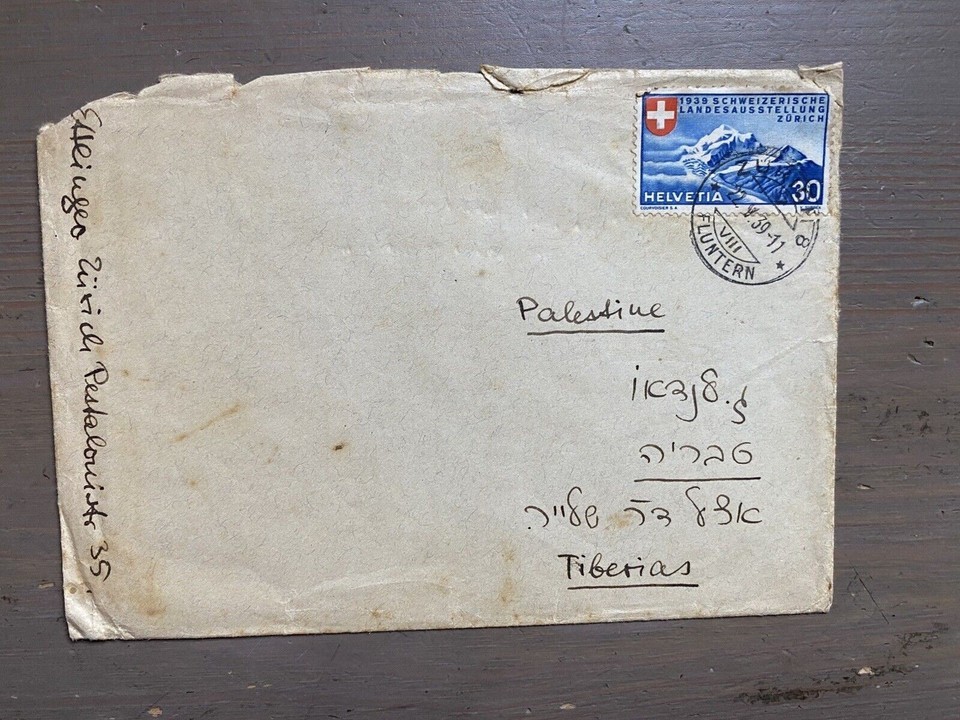 1939 SCHWEIZERISCHE
LANDESAUSSTELLUNG
ZÜRICH
HELVETIA 30
COURVOISIER S.A.
VIII
FLUNTERN
Palestine
ג. לנדאו
טבריה
אצל דר שלייר.
Tiberias
Ettinger Zürich Pestalozzistr 35.